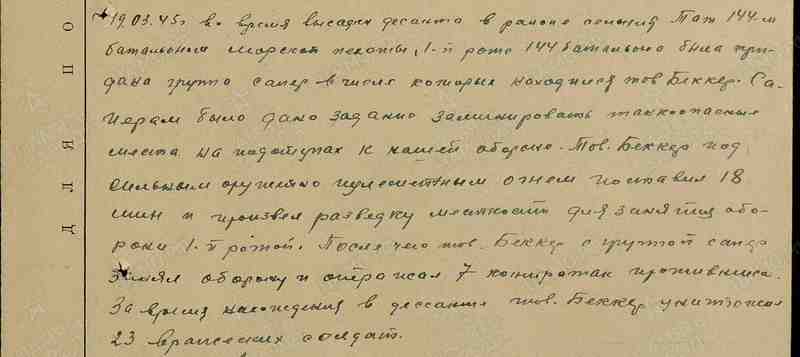 19.03.45г во время высадки десанта в районе селения Тат 144-м
батальоном морской пехоты, 1-й роте 144 батальона была при-
дана группа сапер в числе которых находился тов Беккер. Са-
перам было дано задание заминировать танкоопасные
места на подступах к нашей обороне. Тов. Беккер под
сильным оружейно пулеметным огнем поставил 18
мин и произвел разведку местности для занятия обо-
роны 1-й ротой. После чего тов. Беккер с группой сапер
занял оборону и отразил 7 контратак противника.
За время нахождения в десанте тов. Беккер уничтожил
23 вражеских солдат.
Д Л Я П О